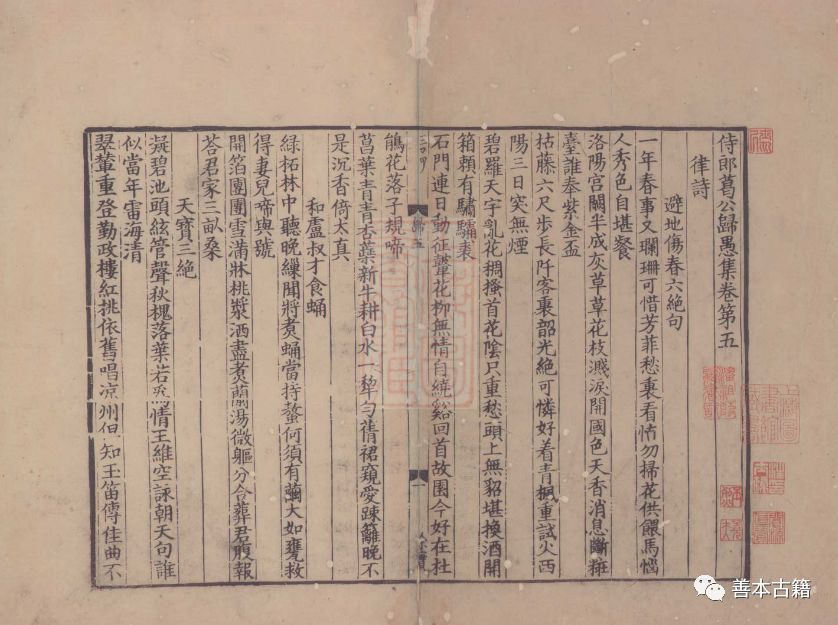 侍郎葛公歸愚集卷第五
律詩
避地傷春六絶句
一年春事又斕珊可惜芳菲愁裏看怙勿掃花供餵馬惱
人秀色自堪餐
洛陽宮闕半成灰草草花枝濺淚開國色天香消息斷粧
臺誰奉紫金盃
枯藤六尺步長阡客裏韶光絶可憐好着青楓重試火西
陽三日突無煙
碧羅天宇亂花稠搔首花陰只重愁頭上無貂堪換酒開
箱賴有驌驦裘
石門連日動征鼙花柳無情自繞谿回首故園今好在杜
鵑花落子規啼
菖葉青青杏蘂新牛耕白水一犂勻舊裙窺愛踈籬晩不
是沉香倚太真
和盧叔才食蛹
緑柘林中聽晩繅聞將煑蛹當持螯何須有繭大如甕救
得妻兒啼與號
開箔團團雪滿牀桃漿洒盡煑蘭湯微軀分合葬君腹報
荅君家三畝桑
天寶三絶
凝碧池頭絃管聲秋槐落葉若爲情王維空詠朝天句誰
似當年雷海清
翠輦重登勤政樓紅桃依舊唱凉州但知玉笛傳佳曲不
歸五
一
善本古籍